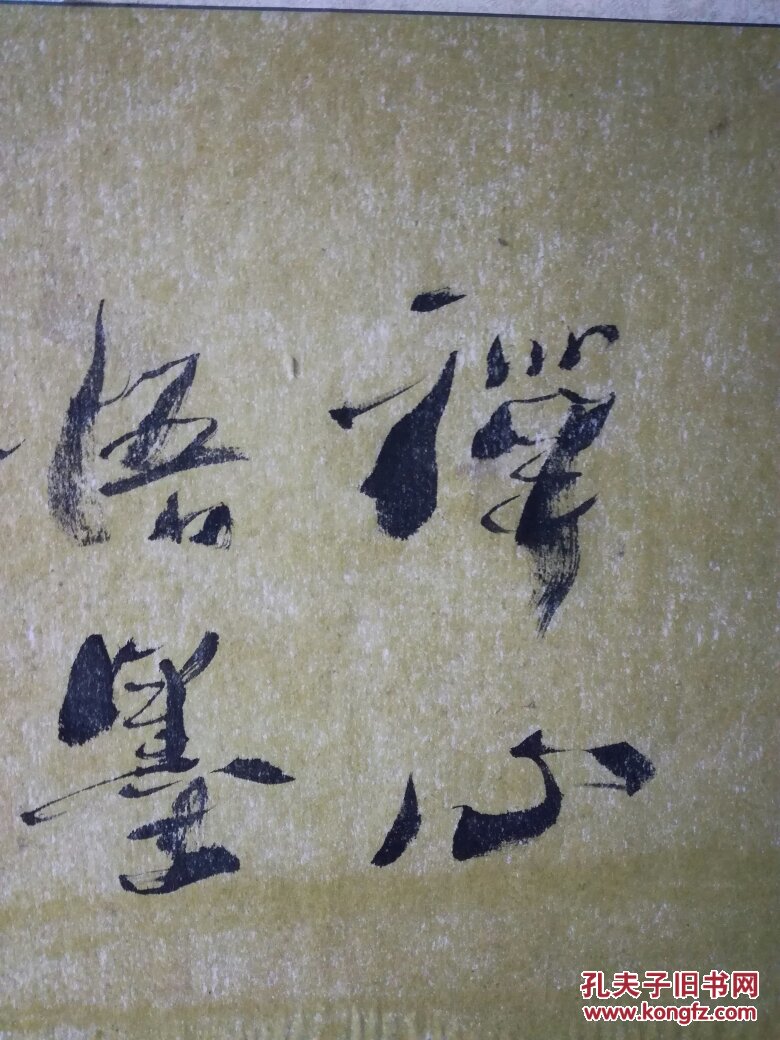 禪心
悟墨
孔夫子旧书网
www.kongfz.com